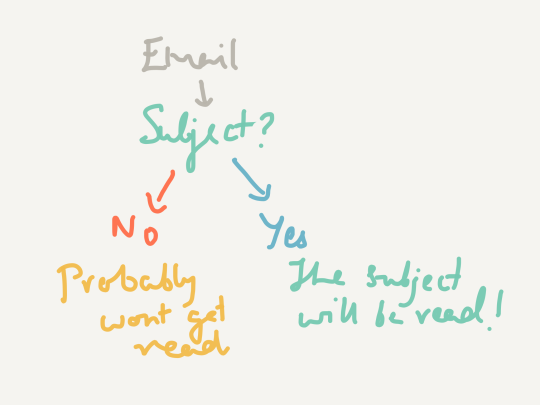 Email
Subject?
No
Yes
Probably
wont get
read
The subject
will be read!